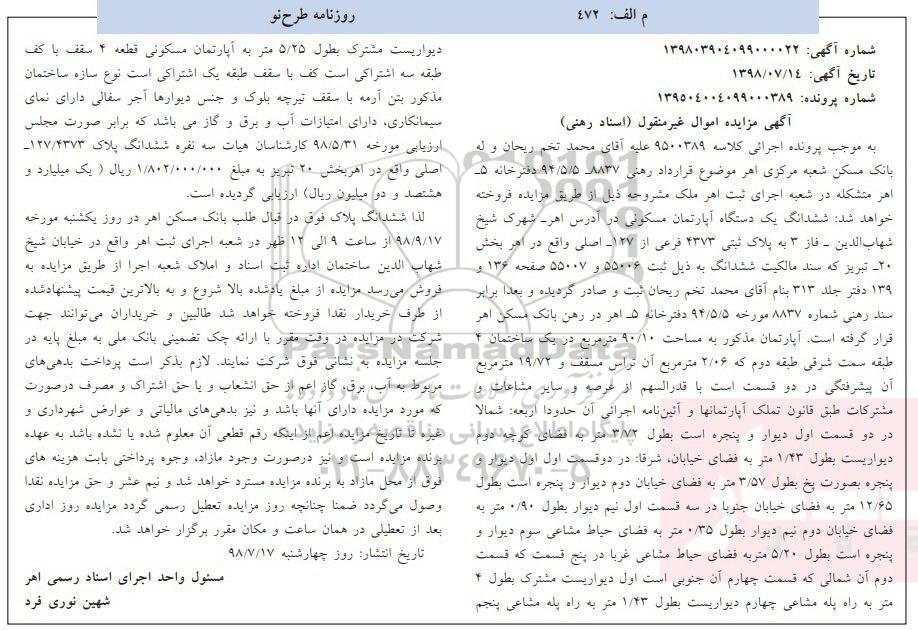 م الف: ۴۷۲
روزنامه طرح‌نو
شماره آگهی: ۱۳۹۸۰۳۹۰۴۰۹۹۰۰۰۰۲۲
تاریخ آگهی: ۱۳۹۸/۰۷/۱۴
شماره پرونده: ۱۳۹۵۰۴۰۰۴۰۹۹۰۰۰۳۸۹
آگهی مزایده اموال غیرمنقول (اسناد رهنی)
به موجب پرونده اجرائی کلاسه ۹۵۰۰۳۸۹ علیه آقای محمد تخم ریحان و له
بانک مسکن شعبه مرکزی اهر موضوع قرارداد رهنی ۸۸۳۷ـ ۹۴/۵/۵ دفترخانه ۵ـ
اهر متشکله در شعبه اجرای ثبت اهر ملک مشروحه ذیل از طریق مزایده فروخته
خواهد شد: ششدانگ یک دستگاه آپارتمان مسکونی در آدرس اهرـ شهرک شیخ
شهاب‌الدین ـ فاز ۳ به پلاک ثبتی ۴۳۷۳ فرعی از ۱۲۷ـ اصلی واقع در اهر بخش
۲۰ـ تبریز که سند مالکیت ششدانگ به ذیل ثبت ۵۵۰۰۶ و ۵۵۰۰۷ صفحه ۱۳۶ و
۱۳۹ دفتر جلد ۳۱۳ بنام آقای محمد تخم ریحان ثبت و صادر گردیده و بعدا برابر
سند رهنی شماره ۸۸۳۷ مورخه ۹۴/۵/۵ دفترخانه ۵ـ اهر در رهن بانک مسکن اهر
قرار گرفته است. آپارتمان مذکور به مساحت ۹۰/۱۰ مترمربع در یک ساختمان ۴
طبقه سمت شرقی طبقه دوم که ۲/۰۶ مترمربع آن تراس مسقف و ۱۹/۷۲ مترمربع
آن پیشرفتگی در دو قسمت است با قدرالسهم از عرصه و سایر مشاعات و
مشترکات طبق قانون تملک آپارتمانها و آئین‌نامه اجرائی آن حدودا اربعه: شمالا
در دو قسمت اول دیوار و پنجره است بطول ۳/۷۲ متر به فضای کوچه دوم
دیواریست بطول ۱/۴۳ متر به فضای خیابان، شرقا: در دوقسمت اول اول دیوار و
پنجره بصورت پخ بطول ۳/۵۷ متر به فضای خیابان دوم دیوار و پنجره است بطول
۱۲/۶۵ متر به فضای خیابان جنوبا در سه قسمت اول نیم دیوار بطول ۰/۹۰ متر به
فضای خیابان دوم نیم دیوار بطول ۰/۳۵ متر به فضای حیاط مشاعی سوم دیوار و
پنجره است بطول ۵/۲۰ متربه فضای حیاط مشاعی غربا در پنج قسمت که قسمت
دوم آن شمالی که قسمت چهارم آن جنوبی است اول دیواریست مشترک بطول ۴
متر به راه پله مشاعی چهارم دیواریست بطول ۱/۴۳ متر به راه پله مشاعی پنجم
دیواریست مشترک بطول ۵/۲۵ متر به آپارتمان مسکونی قطعه ۴ سقف با کف
طبقه سه اشتراکی است کف با سقف طبقه یک اشتراکی است نوع سازه ساختمان
مذکور بتن آرمه با سقف تیرچه بلوک و جنس دیوارها آجر سفالی دارای نمای
سیمانکاری، دارای امتیازات آب و برق و گاز می باشد که برابر صورت مجلس
ارزیابی مورخه ۹۸/۵/۳۱ کارشناسان هیات سه نفره ششدانگ پلاک ۱۲۷/۴۳۷۳ـ
اصلی واقع در اهربخش ۲۰ تبریز به مبلغ ۱/۸۰۲/۰۰۰/۰۰۰ ریال ( یک میلیارد و
هشتصد و دو میلیون ریال) ارزیابی گردیده است.
لذا ششدانگ پلاک فوق در قبال طلب بانک مسکن اهر در روز یکشنبه مورخه
۹۸/۹/۱۷ از ساعت ۹ الی ۱۲ ظهر در شعبه اجرای ثبت اهر واقع در خیابان شیخ
شهاب الدین ساختمان اداره ثبت اسناد و املاک شعبه اجرا از طریق مزایده به
فروش می‌رسد مزایده از مبلغ یادشده بالا شروع و به بالاترین قیمت پیشنهادشده
از طرف خریدار نقدا فروخته خواهد شد طالبین و خریداران می‌توانند جهت
شرکت در مزایده در وقت مقرر با ارائه چک تضمینی بانک ملی به مبلغ پایه در
جلسه مزایده به نشانی فوق شرکت نمایند. لازم بذکر است پرداخت بدهی‌های
مربوط به آب، برق، گاز اعم از حق انشعاب و یا حق اشتراک و مصرف درصورت
که مورد مزایده دارای آنها باشد و نیز بدهی‌های مالیاتی و عوارض شهرداری و
غیره تا تاریخ مزایده اعم از اینکه رقم قطعی آن معلوم شده یا نشده باشد به عهده
برنده مزایده است و نیز درصورت وجود مازاد، وجوه پرداختی بابت هزینه های
فوق از محل مازاد به برنده مزایده مسترد خواهد شد و نیم عشر و حق مزایده نقدا
وصول می‌گردد ضمنا چنانچه روز مزایده تعطیل رسمی گردد مزایده روز اداری
بعد از تعطیلی در همان ساعت و مکان مقرر برگزار خواهد شد.
تاریخ انتشار: روز چهارشنبه ۹۸/۷/۱۷
مسئول واحد اجرای اسناد رسمی اهر
شهین نوری فرد
ParsNamadData
پایگاه اطلاع رسانی مناقصه و مزایده
۰۲۱-۸۸۳۴۹۶۷۰-۵